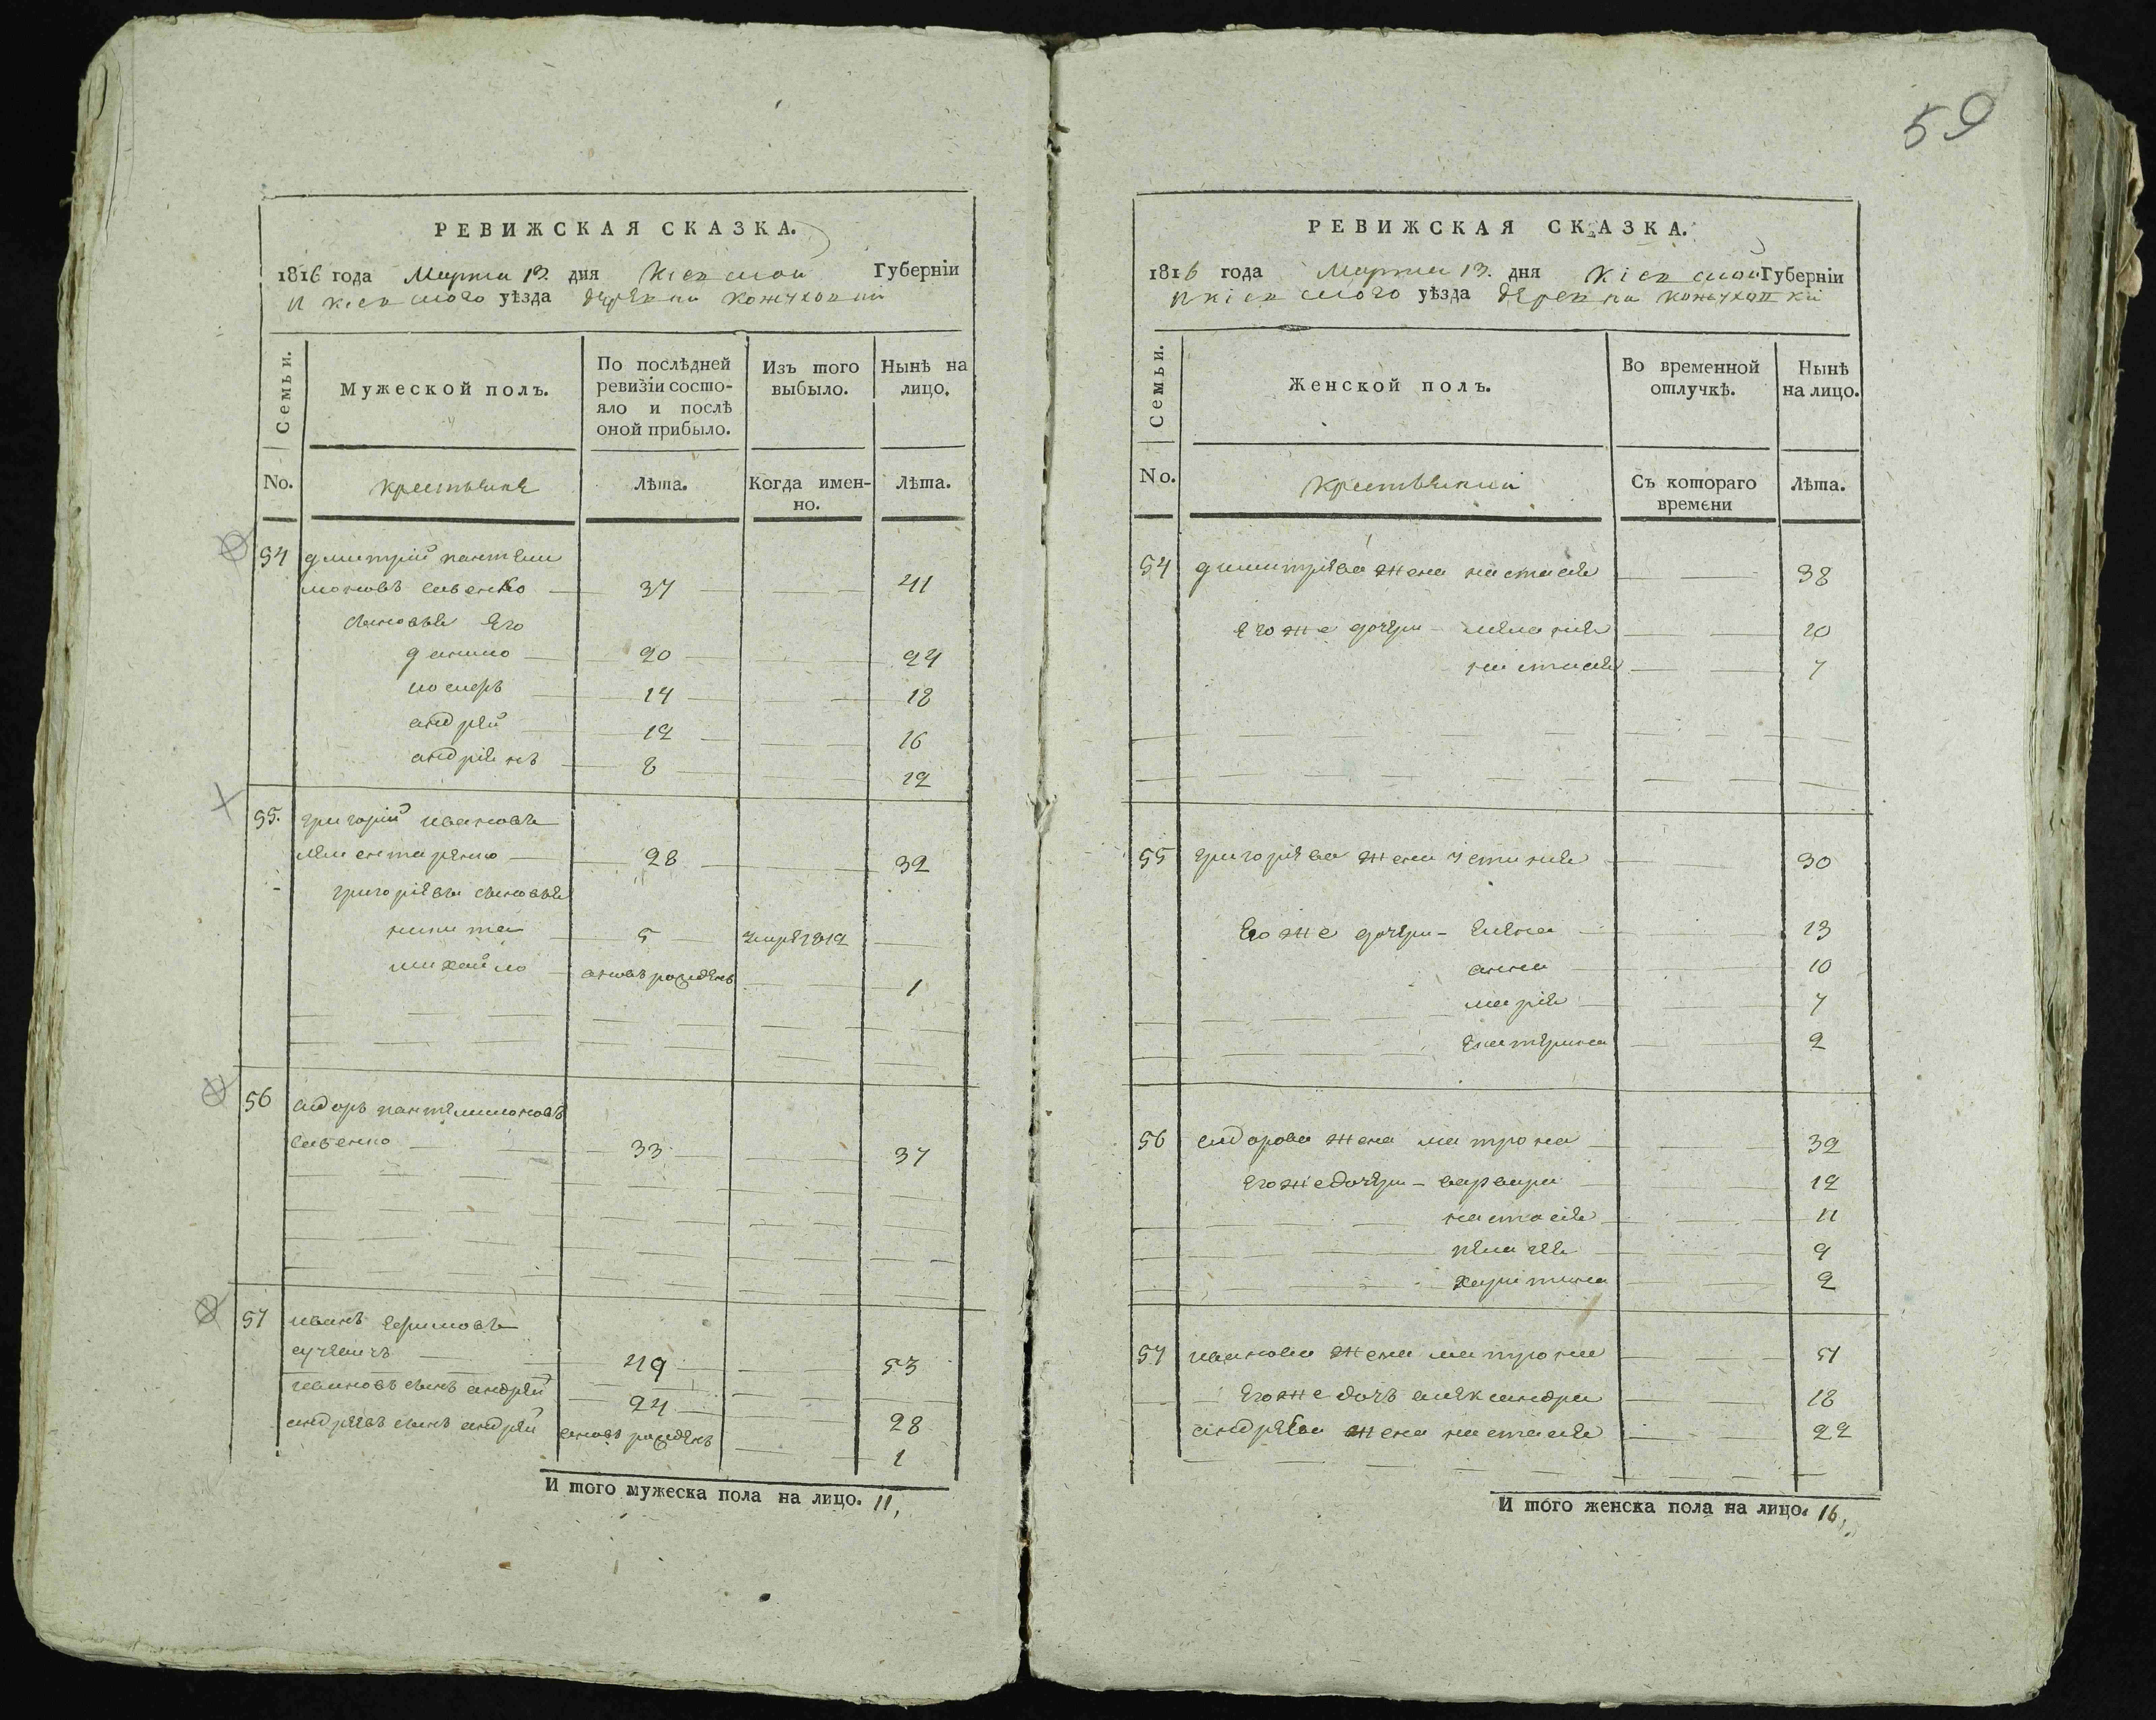 59
РЕВИЖСКАЯ СКАЗКА.
1816 года Марта 13 дня Кіевской Губерніи
И кіевского уѣзда деревни кожуховки
Семьи.
Мужеской полъ.
По послѣдней ревизіи состояло и послѣ оной прибыло.
Изъ того выбыло.
Нынѣ на лицо.
No. крестьяне Лѣта. Когда именно. Лѣта.
54 дмитрій пантели
моновъ савенко 37 41
сыновья его
данило 20 24
іосифъ 14 18
андрей 12 16
андріянъ 8 12
55. григорій ивановъ
28 32
григоріевы сыновья
никита 5 умре 1812
михайло вновь рожденъ 1
56 сидоръ пантелимоновъ
савенко 33 37
57 иванъ ефимовъ
49 53
ивановъ сынъ андрей 24 28
андреевъ сынъ андрей вновь рожденъ 1
И того мужеска пола на лицо. 11,
РЕВИЖСКАЯ СКАЗКА.
1816 года Марта 13. дня Кіевской Губерніи
И кіевского уѣзда деревни кожуховки
Семьи.
Женской полъ.
Во временной отлучкѣ.
Нынѣ на лицо.
No. крестьянки Съ котораго времени Лѣта.
54 димитріева жена настасія 38
его же дочери меланія 10
настасія 7
55 григоріева жена устинія 30
его же дочери елена 13
анна 10
марія 7
екатерина 2
56 сидорова жена матрона 32
его же дочери варвара 12
настасія 11
пелагея 9
харитина 2
57 иванова жена матрона 51
его же дочь александра 18
андреева жена настасія 22
И того женска пола на лицо. 16,